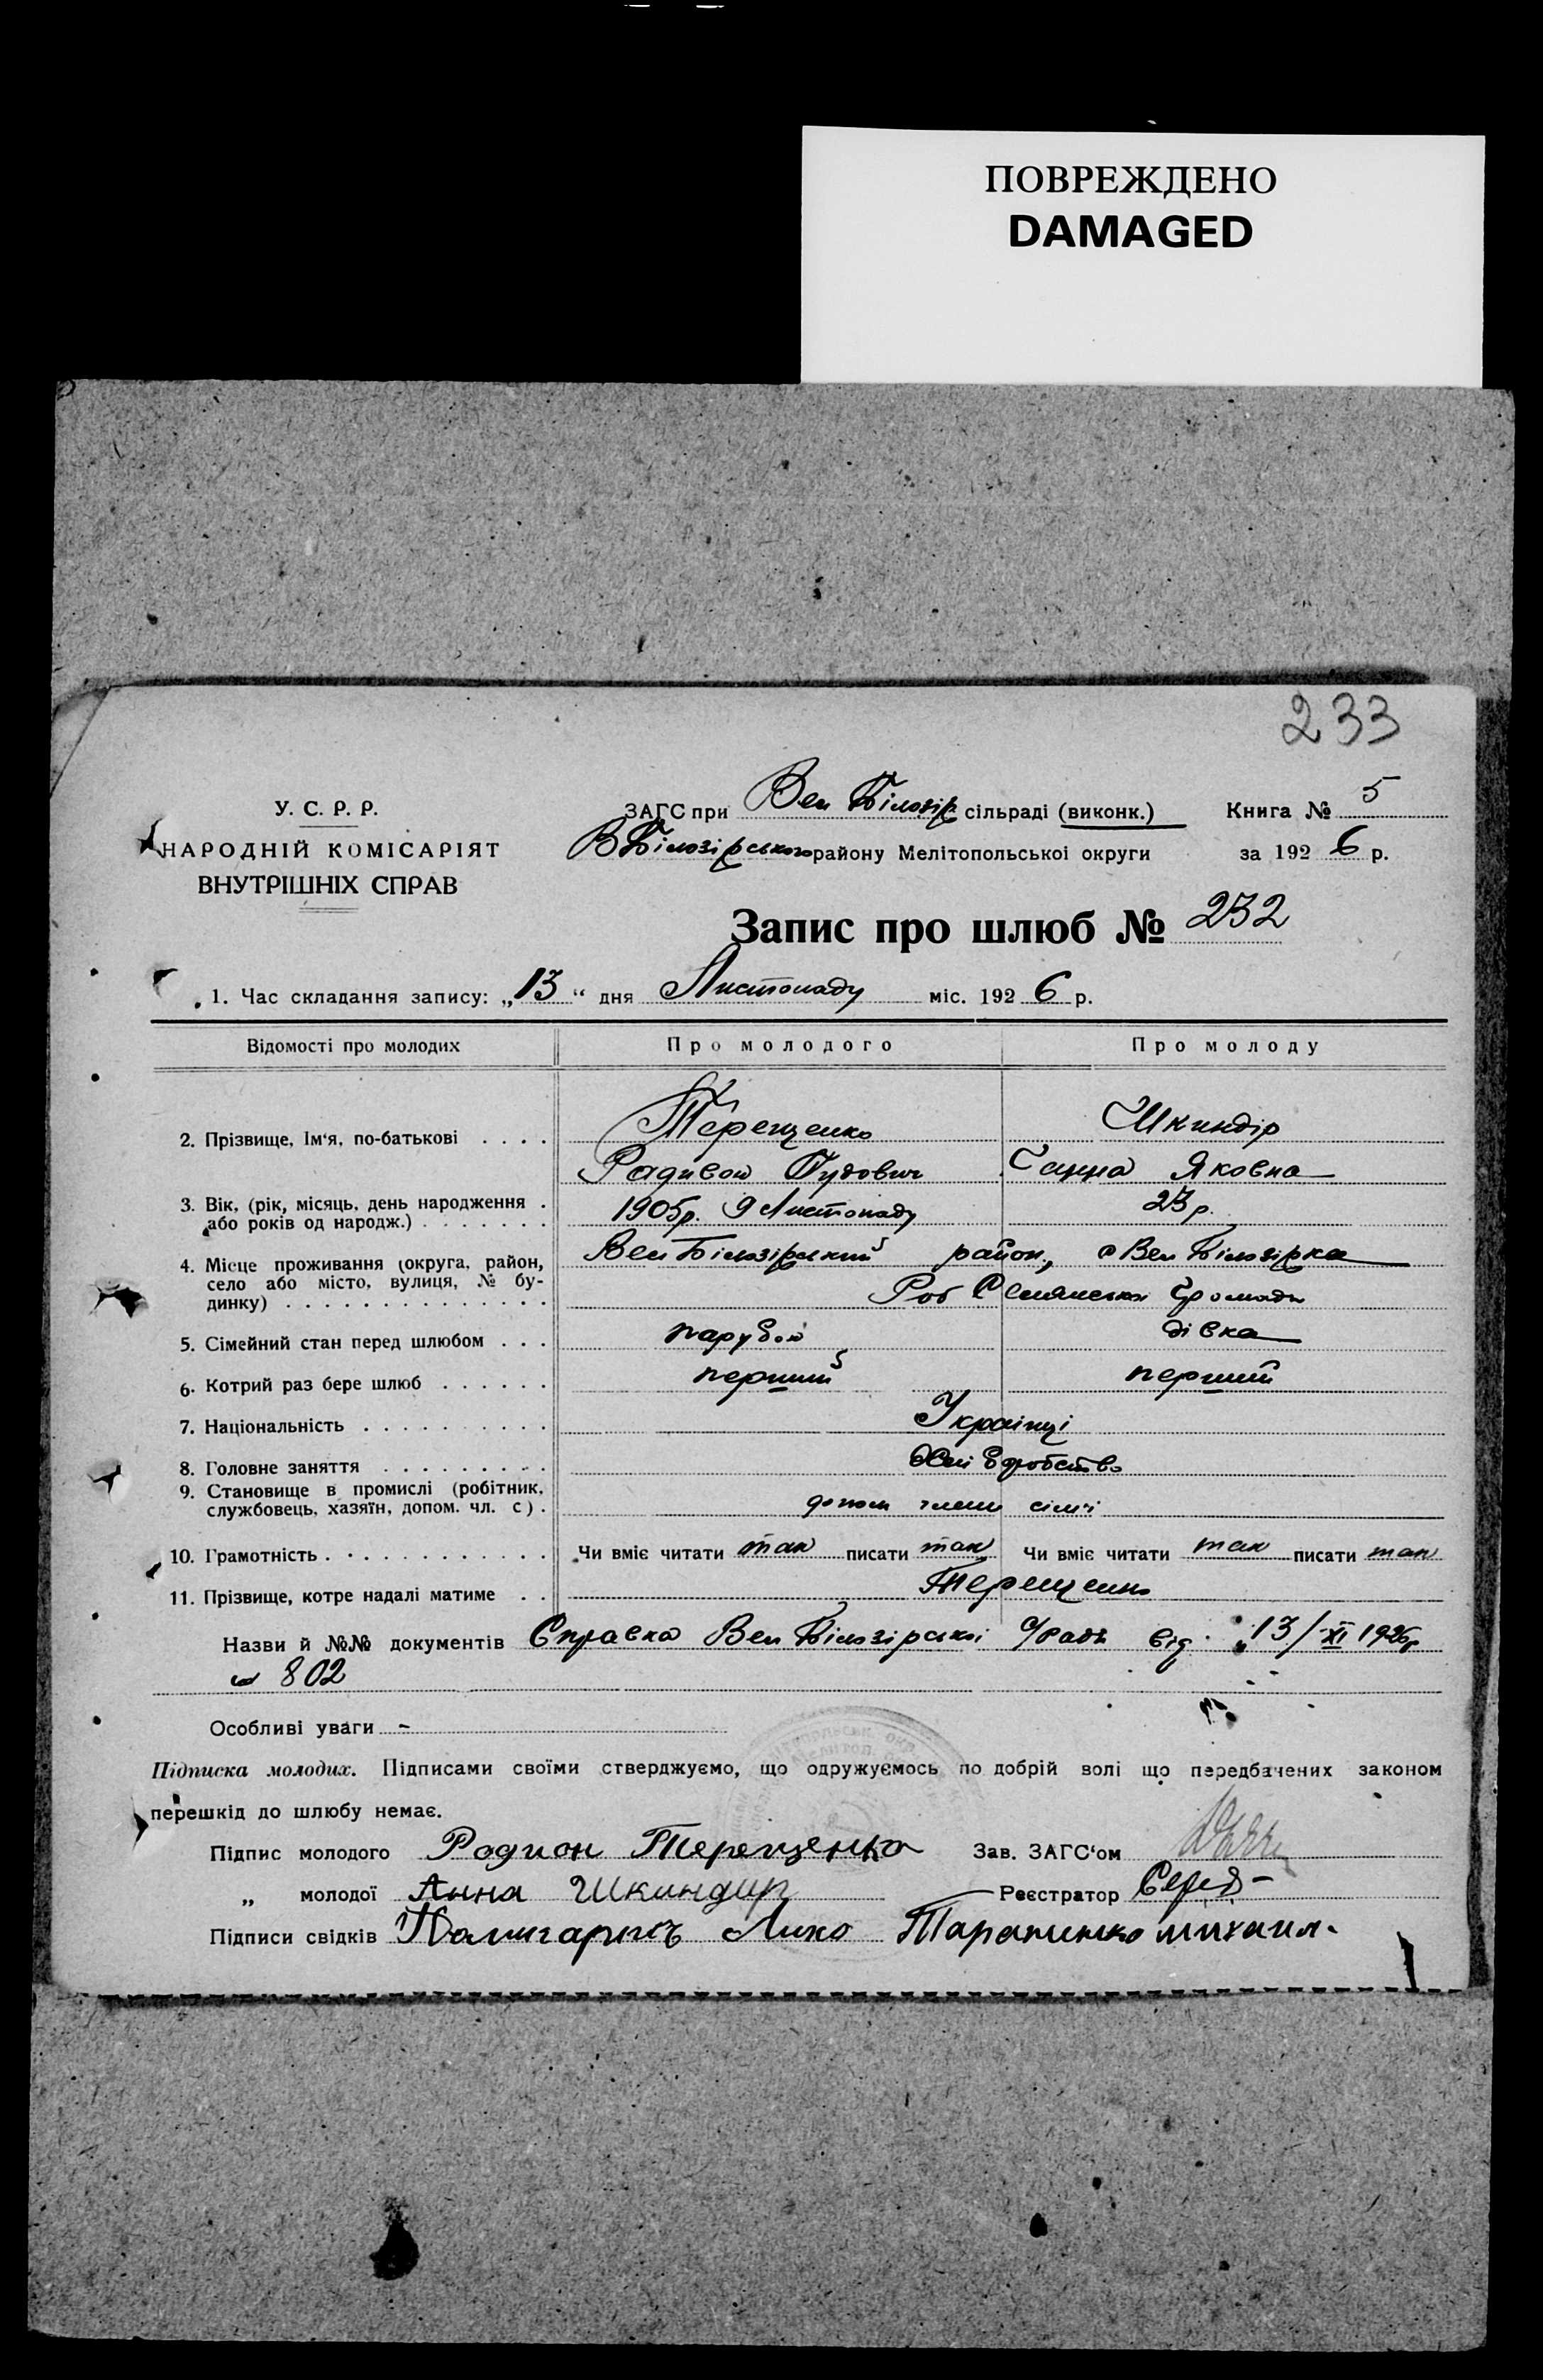 ПОВРЕЖДЕНО
DAMAGED
233
У. С. Р. Р.
НАРОДНІЙ КОМІСАРІЯТ
ВНУТРІШНІХ СПРАВ
ЗАГС при Вел Білозір сільраді (виконк.) Книга № 5
В Білозірського району Мелітопольської округи за 1926 р.
Запис про шлюб № 232
1. Час складання запису: „13“ дня Листопаду міс. 1926 р.
Відомості про молодих Про молодого Про молоду
2. Прізвище, Ім'я, по-батькові . . . . Терещенко Шкиндір
Радивон Пудович Ганна Яковна
3. Вік, (рік, місяць, день народження . 1905р. 9 Листопаду 23 р.
або років од народж.) . . . . . . .
4. Місце проживання (округа, район, Вел Білозірський район, с Вел Білозірка
село або місто, вулиця, № бу-
динку) . . . . . . . . . . . . . . Громади
5. Сімейний стан перед шлюбом . . . парубок дівка
6. Котрий раз бере шлюб . . . . . . перший перший
7. Національність . . . . . . . . . . Українці
8. Головне заняття . . . . . . . . . Хліборобство
9. Становище в промислі (робітник,
службовець, хазяїн, допом. чл. с) . допом члени сімї
10. Грамотність . . . . . . . . . . . . Чи вміє читати так писати так Чи вміє читати так писати так
11. Прізвище, котре надалі матиме . . Терещенко
Назви й №№ документів Справка Вел Білозірської с/ради від 13/XI 1926р
№ 802
Особливі уваги -
Підписка молодих. Підписами своїми стверджуємо, що одружуємось по добрій волі що передбачених законом
перешкід до шлюбу немає.
Підпис молодого Родион Терещенко Зав. ЗАГС'ом
„ молодої Анна Шкиндир Реєстратор
Підписи свідків Михаил